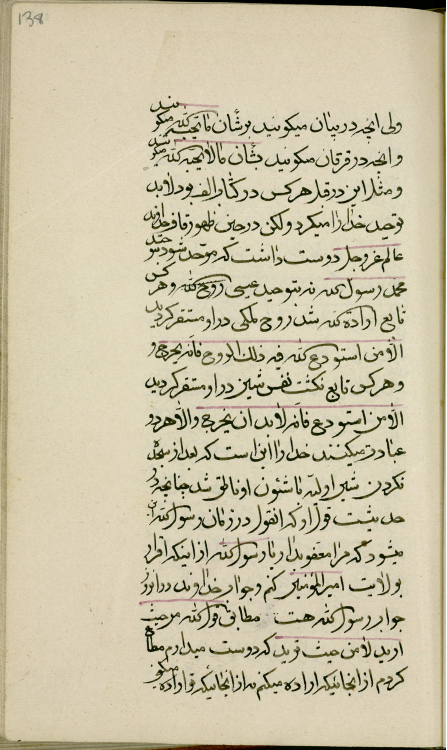 138
ولی انچه در بیان میکوسید بر شأن ما یحبه الله میکوسید
و انچه در فرقان میکوسید بشأن ما لا یحبه الله میکوسید
و مثل این در قبل هر کس در کتاب الف بود لابد
توحید خدا را میکرد ولکن در حین ظهور قاف خداوند
عالم عز و جل دوست داشت که موحد شود بتوحید
محمد رسول الله نه بتوحید عیسی روح الله و هر کس
تابع اراده الله شد روح ملکی در او مستقر کردید
الا من استودع الله فیه ذلک الروح فانه یخرج و
و هر کس تابع نکشت نفس شین در او مستقر کردید
الا من استودع فانه لابد ان یخرج و الا هر دو
عبادت میکنند خدا را این است که بعد از سجده
نکردن شین اولیه تا شئون او نالایق شد چنانچه در
حدیث قول او که انقول در زمان رسول الله
میشود که مرا معفو بدار یا رسول الله از اینکه اقرار
بولایت امیرالمؤمنین کنم و جواب خداوند در او
جواب رسول الله هست مطابق قول الله من حیث
ارید لا من حیث ترید که دوست میدارم مطاع
کردم از انجائیکه اراده میکنم نه از انجائیکه تو اراده میکنی